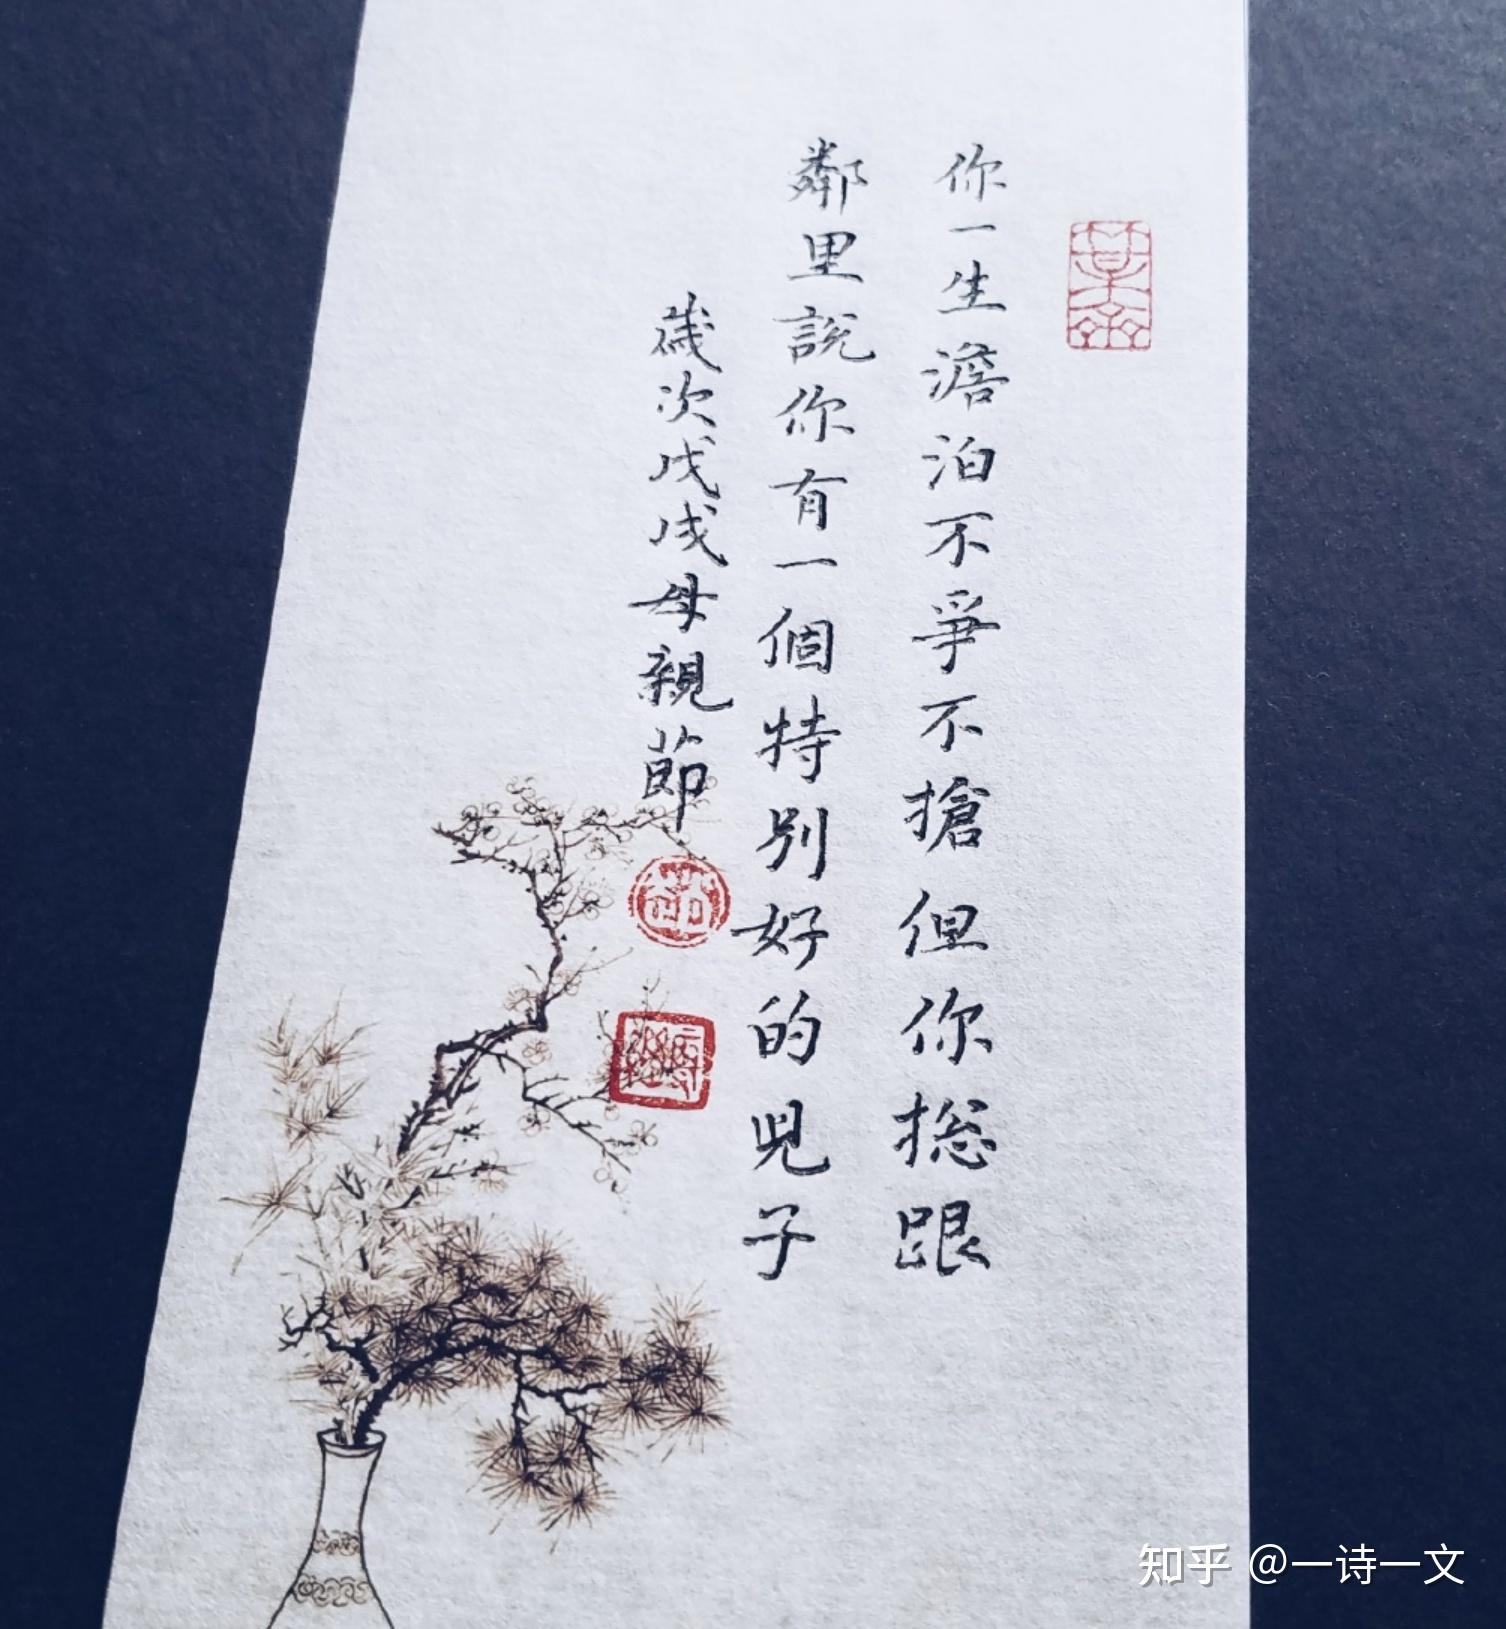 你一生澹泊不爭不搶但你摠跟
鄰里說你有一個特別好的兒子
歲次戊戌母親節
知乎 @一诗一文